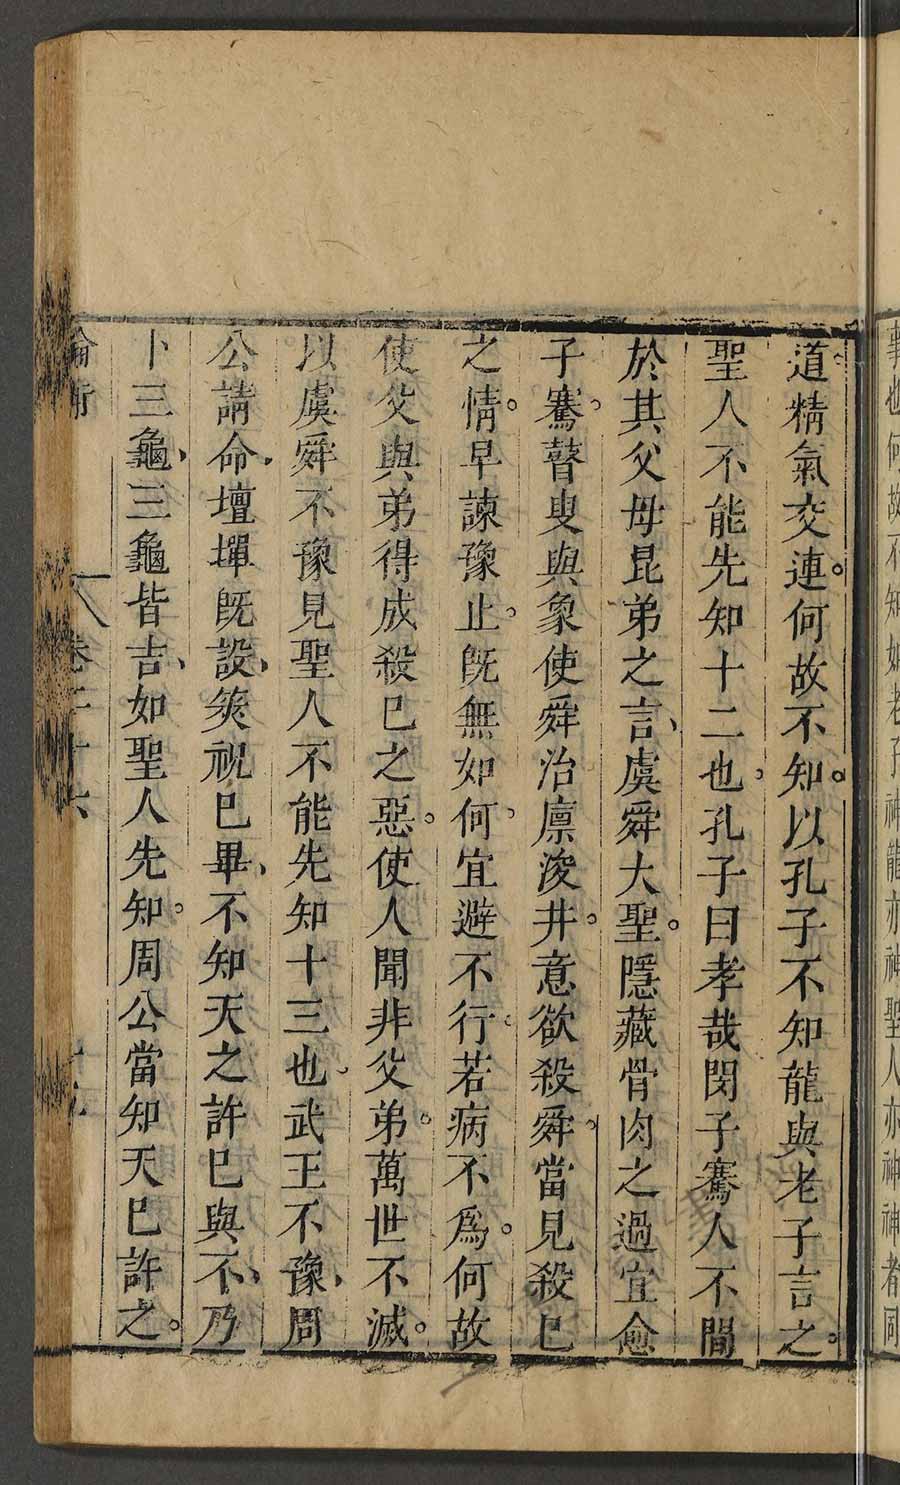 事也何故不知如老子神龍亦神聖人亦神神者同
道精氣交連。何故不知。以孔子不知龍與老子言之。
聖人不能先知十二也。孔子曰孝哉閔子騫人不間
於其父母昆弟之言、虞舜大聖。隱藏骨肉之過宜愈
子騫。瞽叟與象使舜治廩浚井。意欲殺舜。當見殺已
之情。早諫豫止。旣無如何。宜避不行。若病不爲。何故
使父與弟得成殺已之惡。使人聞非父弟。萬世不滅。
以虞舜不豫見聖人不能先知十三也。武王不豫、周
公請命、壇墠旣設、筴祝已畢、不知天之許已與不、乃
卜三龜、三龜皆吉、如聖人先知。周公當知天已許之。
論衡 卷二十六